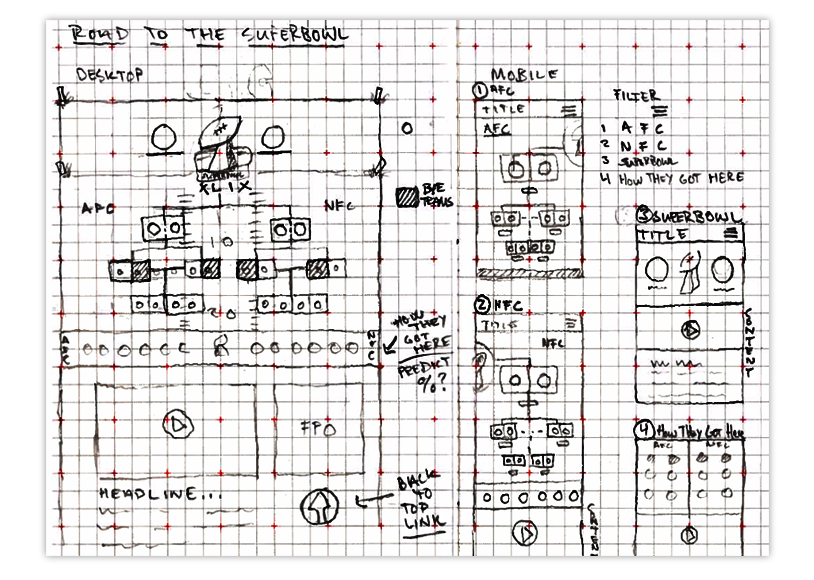 ROAD TO THE SUPERBOWL
DESKTOP
XLIX
AFC
NFC
10
20
BYE
TEAMS
AFC
NFC
HOW THEY
GOT
HERE
PREDICT
%?
FPO
HEADLINE...
BACK
TO
TOP
LINK
MOBILE
1 AFC
TITLE
AFC
2 NFC
TITLE
NFC
CONTENT
FILTER
1 AFC
2 NFC
3 SUPERBOWL
4 HOW THEY GOT HERE
3 SUPERBOWL
TITLE
CONTENT
4 HOW THEY GOT HERE
AFC
NFC